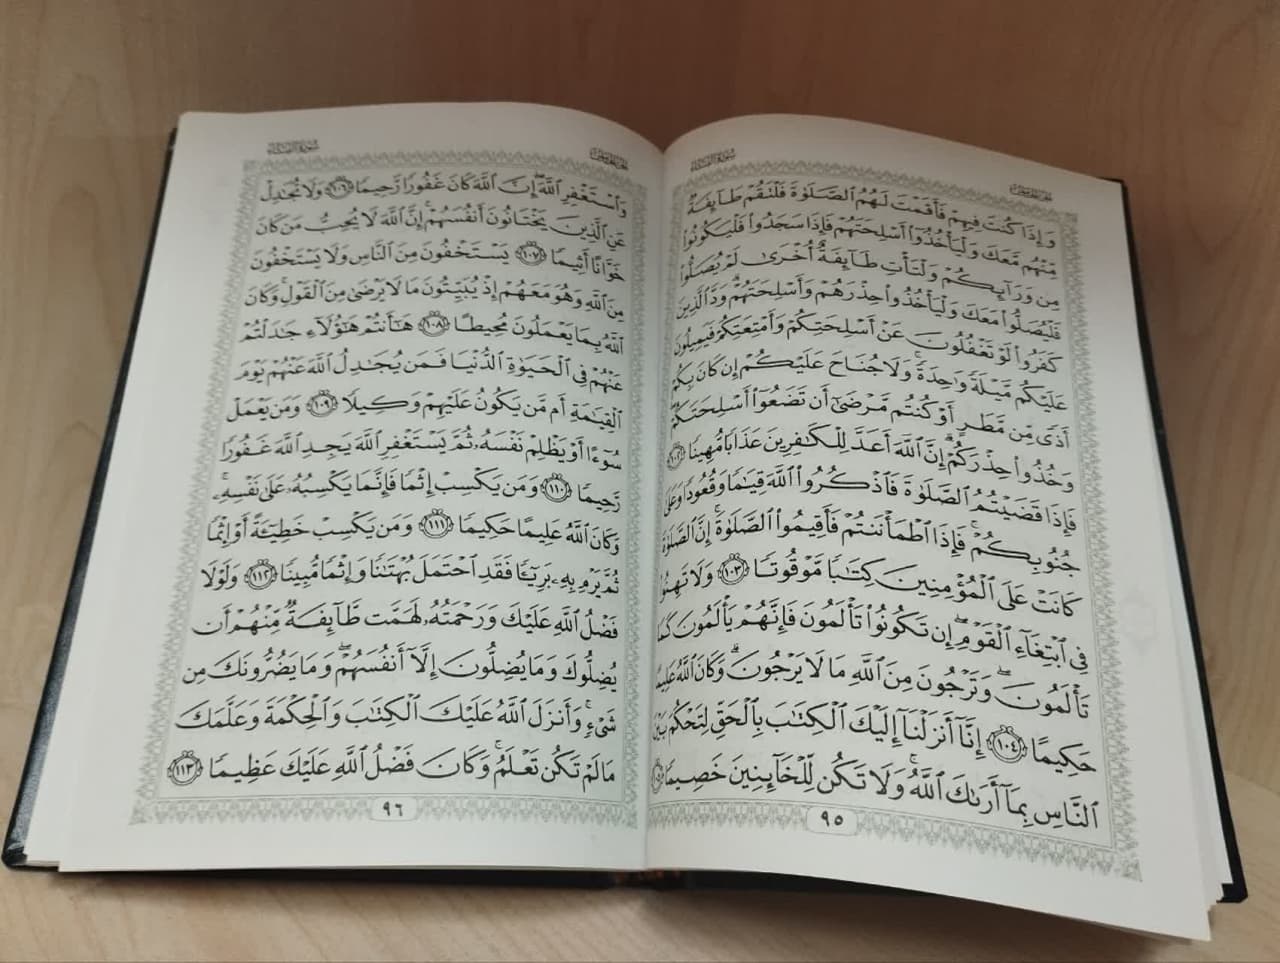 سورة النساء
الجزء الخامس
وَإِذَا كُنتَ فِيهِمْ فَأَقَمْتَ لَهُمُ ٱلصَّلَوٰةَ فَلْتَقُمْ طَآئِفَةٌ
مِّنْهُم مَّعَكَ وَلْيَأْخُذُوٓا۟ أَسْلِحَتَهُمْ فَإِذَا سَجَدُوا۟ فَلْيَكُونُوا۟
مِن وَرَآئِكُمْ وَلْتَأْتِ طَآئِفَةٌ أُخْرَىٰ لَمْ يُصَلُّوا۟
فَلْيُصَلُّوا۟ مَعَكَ وَلْيَأْخُذُوا۟ حِذْرَهُمْ وَأَسْلِحَتَهُمْ ۗ وَدَّ ٱلَّذِينَ
كَفَرُوا۟ لَوْ تَغْفُلُونَ عَنْ أَسْلِحَتِكُمْ وَأَمْتِعَتِكُمْ فَيَمِيلُونَ
عَلَيْكُم مَّيْلَةً وَٰحِدَةً ۚ وَلَا جُنَاحَ عَلَيْكُمْ إِن كَانَ بِكُمْ
أَذًى مِّن مَّطَرٍ أَوْ كُنتُم مَّرْضَىٰٓ أَن تَضَعُوٓا۟ أَسْلِحَتَكُمْ ۖ
وَخُذُوا۟ حِذْرَكُمْ ۗ إِنَّ ٱللَّهَ أَعَدَّ لِلْكَٰفِرِينَ عَذَابًا مُّهِينًا ١٠٢
فَإِذَا قَضَيْتُمُ ٱلصَّلَوٰةَ فَٱذْكُرُوا۟ ٱللَّهَ قِيَٰمًا وَقُعُودًا وَعَلَىٰ
جُنُوبِكُمْ ۚ فَإِذَا ٱطْمَأْنَنتُمْ فَأَقِيمُوا۟ ٱلصَّلَوٰةَ ۚ إِنَّ ٱلصَّلَوٰةَ
كَانَتْ عَلَى ٱلْمُؤْمِنِينَ كِتَٰبًا مَّوْقُوتًا ١٠٣ وَلَا تَهِنُوا۟
فِى ٱبْتِغَآءِ ٱلْقَوْمِ ۖ إِن تَكُونُوا۟ تَأْلَمُونَ فَإِنَّهُمْ يَأْلَمُونَ كَمَا
تَأْلَمُونَ ۖ وَتَرْجُونَ مِنَ ٱللَّهِ مَا لَا يَرْجُونَ ۗ وَكَانَ ٱللَّهُ عَلِيمًا
حَكِيمًا ١٠٤ إِنَّآ أَنزَلْنَآ إِلَيْكَ ٱلْكِتَٰبَ بِٱلْحَقِّ لِتَحْكُمَ بَيْنَ
ٱلنَّاسِ بِمَآ أَرَىٰكَ ٱللَّهُ ۚ وَلَا تَكُن لِّلْخَآئِنِينَ خَصِيمًا
٩٥
سورة النساء
الجزء الخامس
وَٱسْتَغْفِرِ ٱللَّهَ ۖ إِنَّ ٱللَّهَ كَانَ غَفُورًا رَّحِيمًا ١٠٦ وَلَا تُجَٰدِلْ
عَنِ ٱلَّذِينَ يَخْتَانُونَ أَنفُسَهُمْ ۚ إِنَّ ٱللَّهَ لَا يُحِبُّ مَن كَانَ
خَوَّانًا أَثِيمًا ١٠٧ يَسْتَخْفُونَ مِنَ ٱلنَّاسِ وَلَا يَسْتَخْفُونَ
مِنَ ٱللَّهِ وَهُوَ مَعَهُمْ إِذْ يُبَيِّتُونَ مَا لَا يَرْضَىٰ مِنَ ٱلْقَوْلِ ۚ وَكَانَ
ٱللَّهُ بِمَا يَعْمَلُونَ مُحِيطًا ١٠٨ هَٰٓأَنتُمْ هَٰٓؤُلَآءِ جَٰدَلْتُمْ
عَنْهُمْ فِى ٱلْحَيَوٰةِ ٱلدُّنْيَا فَمَن يُجَٰدِلُ ٱللَّهَ عَنْهُمْ يَوْمَ
ٱلْقِيَٰمَةِ أَم مَّن يَكُونُ عَلَيْهِمْ وَكِيلًا ١٠٩ وَمَن يَعْمَلْ
سُوٓءًا أَوْ يَظْلِمْ نَفْسَهُۥ ثُمَّ يَسْتَغْفِرِ ٱللَّهَ يَجِدِ ٱللَّهَ غَفُورًا
رَّحِيمًا ١١٠ وَمَن يَكْسِبْ إِثْمًا فَإِنَّمَا يَكْسِبُهُۥ عَلَىٰ نَفْسِهِۦ ۚ
وَكَانَ ٱللَّهُ عَلِيمًا حَكِيمًا ١١١ وَمَن يَكْسِبْ خَطِيٓـَٔةً أَوْ إِثْمًا
ثُمَّ يَرْمِ بِهِۦ بَرِيٓـًٔا فَقَدِ ٱحْتَمَلَ بُهْتَٰنًا وَإِثْمًا مُّبِينًا ١١٢ وَلَوْلَا
فَضْلُ ٱللَّهِ عَلَيْكَ وَرَحْمَتُهُۥ لَهَمَّت طَّآئِفَةٌ مِّنْهُمْ أَن
يُضِلُّوكَ وَمَا يُضِلُّونَ إِلَّآ أَنفُسَهُمْ ۖ وَمَا يَضُرُّونَكَ مِن
شَىْءٍ ۚ وَأَنزَلَ ٱللَّهُ عَلَيْكَ ٱلْكِتَٰبَ وَٱلْحِكْمَةَ وَعَلَّمَكَ
مَا لَمْ تَكُن تَعْلَمُ ۚ وَكَانَ فَضْلُ ٱللَّهِ عَلَيْكَ عَظِيمًا ١١٣
٩٦